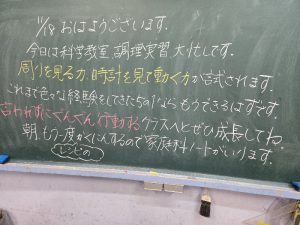 11/18 おはようございます。
今日は科学教室、調理実習、大忙しです。
周りを見る力、時計を見て動く力が試されます。
これまで色々な経験をしてきたみんなならもうできるはずです。
言われずにぐんぐん行動するクラスへとぜひ成長してね。
朝、もう一度かくにんするので家庭科ノートがいります。
レシピの